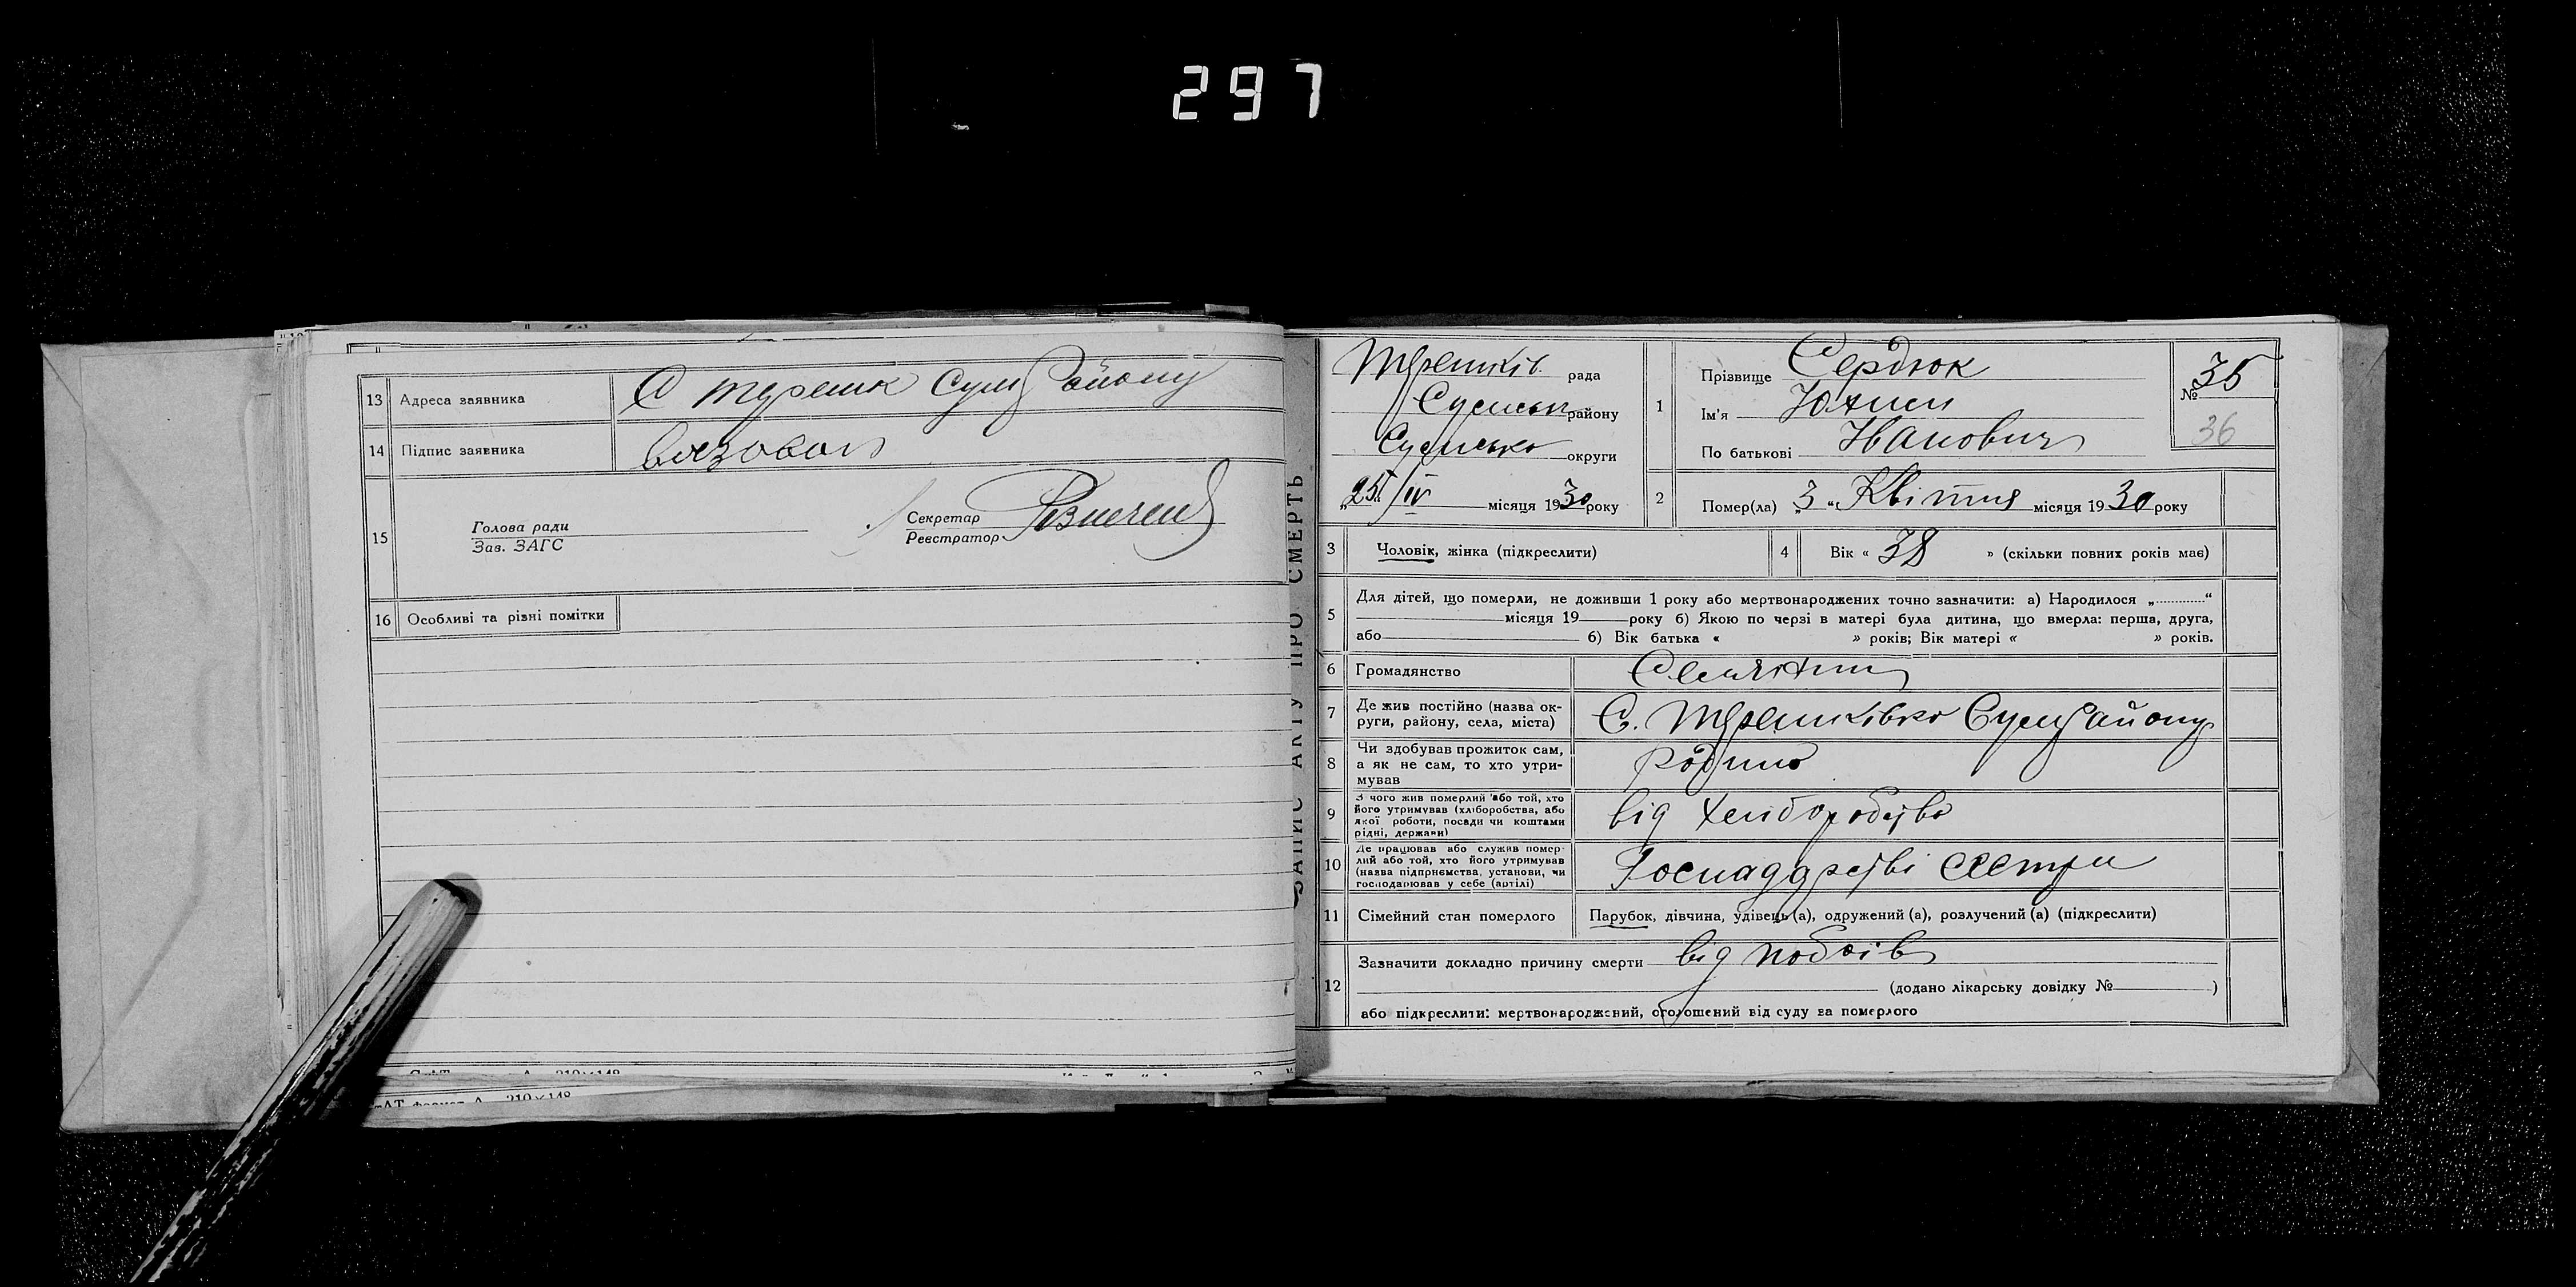 297
13 Адреса заявника С Терешк Сумс Району
14 Підпис заявника
15 Голова ради
Зав. ЗАГС
Секретар
Реєстратор
16 Особливі та різні помітки
ЗАПИС АКТУ ПРО СМЕРТЬ
Терешків рада
Сумськ району
Сумсько округи
„25" /IV місяця 1930 року
1 Прізвище Сердюк
Ім'я Юхим
По батькові Іванович
№ 35
36
2 Помер(ла) „3" Квітня місяця 1930 року
3 Чоловік, жінка (підкреслити)
4 Вік « 38 » (скільки повних років має)
5 Для дітей, що померли, не доживши 1 року або мертвонароджених точно зазначити: а) Народилося „............“
місяця 19 року б) Якою по черзі в матері була дитина, що вмерла: перша, друга,
або б) Вік батька « » років; Вік матері « » років.
6 Громадянство
7 Де жив постійно (назва ок-
руги, району, села, міста) С. Терешківка Сумс Району
8 Чи здобував прожиток сам,
а як не сам, то хто утри-
мував родина
9 З чого жив померлий або той, хто
його утримував (хліборобства, або
якої роботи, посади чи коштами
рідні, держави) від хліборобства
10 Де працював або служив помер-
лий або той, хто його утримував
(назва підприємства, установи, чи
господарював у себе (артілі) Господарстві сестри
11 Сімейний стан померлого Парубок, дівчина, удівець(а), одружений(а), розлучений(а) (підкреслити)
12 Зазначити докладно причину смерти від побоїв
(додано лікарську довідку № )
або підкреслити: мертвонароджений, оголошений від суду за померлого
210×148